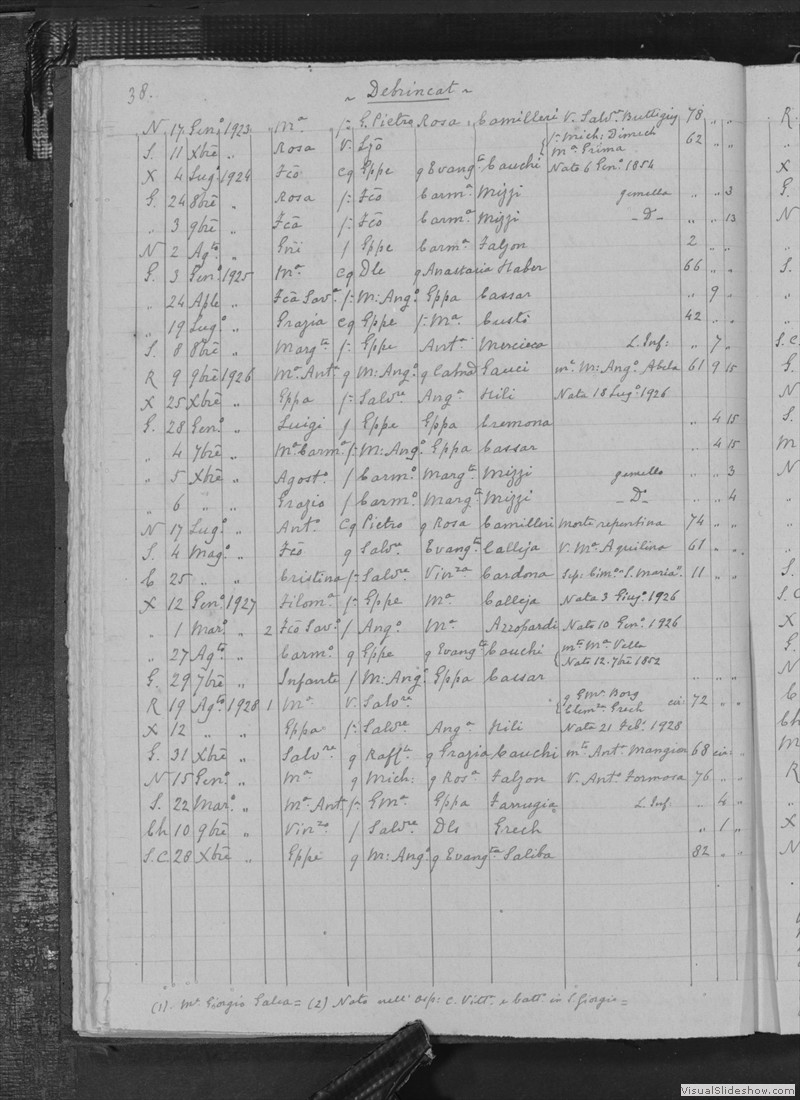 38.
~ Debrincat ~
N 17 Gen.o 1923 Ma f= G. Pietro Rosa Camilleri V. Salv.re Buttigieg 78 " "
S. 11 Xbre " Rosa V. Ljo { f= Mich: Dimech Ma Grima 62 " "
X 4 Lug.o 1924 Fco Cq Eppe q Evang.ta Cauchi Nato 6 Gen.o 1854
G. 24 8bre " Rosa f= Fco Carm.a Mizzi gemella " " 3
" 3 9bre " Fca f= Fco Carm.a Mizzi - D.- " " 13
N 2 Ag.to " f Eppe Carm.a Falzon 2 " "
G. 3 Gen.o 1925 Ma Cq Dle q Anastasia Haber 66 " "
" 24 Aple " Fca Sav.a f= M: Ang.o Eppa Cassar " 9 "
" 19 Lug.o " Grazia Cq Eppe f= Ma Custo 42 " "
S. 8 8bre " Marg.ta f= Eppe Ant.a Mercieca L. Inf: " 7 "
R 9 9bre 1926 Ma Ant.a q M: Ang.o q Catna Gauci m.e M: Ang.o Abela 61 9 15
X 25 Xbre " Eppa f= Salv.re Ang.a Hili Nata 18 Lug.o 1926
G. 28 Gen.o " Luigi f Eppe Eppa Cremona " 4 15
" 4 7bre " Ma Carm.a f= M: Ang.o Eppa Cassar " 4 15
" 5 Xbre " Agost.o f Carm.o Marg.ta Mizzi gemello " " 3
" 6 " " Grazio f Carm.o Marg.ta Mizzi - D.o " " 4
N 17 Lug.o " Ant.o Cq Pietro q Rosa Camilleri Morte repentina 74 " "
S. 4 Mag.o " Fco q Salv.re Evang.ta Calleja V. Ma Aquilina 61 " "
C 25 " " Cristina f= Salv.re Vin.za Cardona Sep: Cim.o S. Maria 11 " "
X 12 Gen.o 1927 Filom.a f= Eppe Ma Calleja Nata 3 Giug.o 1926
" 1 Mar.o " 2 Fco Sav.o f Ang.o Ma Azzopardi Nato 10 Gen.o 1926
" 27 Ag.to " Carm.o q Eppe q Evang.ta Cauchi { m.to Ma Vella Nato 12. 7bre 1852
G. 29 7bre " Infante f M: Ang.o Eppa Cassar " " "
R 19 Ag.to 1928 1 Ma V. Salv.re { q Gm.e Borg Clem.za Grech cir: 72 " "
X 12 " " Eppa f= Salv.re Ang.a Hili Nata 21 Feb.o 1928
G. 31 Xbre " Salv.re q Raff.le q Grazia Cauchi m.to Ant.a Mangion 68 cir: "
N 15 Gen.o " Ma q Mich: q Ros.a Falzon V. Ant.o Formosa 76 " "
S. 22 Mar.o " Ma Ant f= Gm.a Eppa Farrugia L. Inf: " 4 "
Ch 10 9bre " Vin.zo f Salv.re Dls Grech " 1 "
S.C 28 Xbre " Eppe q M: Ang.o q Evang.ta Saliba 82 " "
(1) m.e Giorgio Galea = (2) Nato nell' Osp: C. Vitt. e Batt. in S. Giorgio =
VisualSlideshow.com